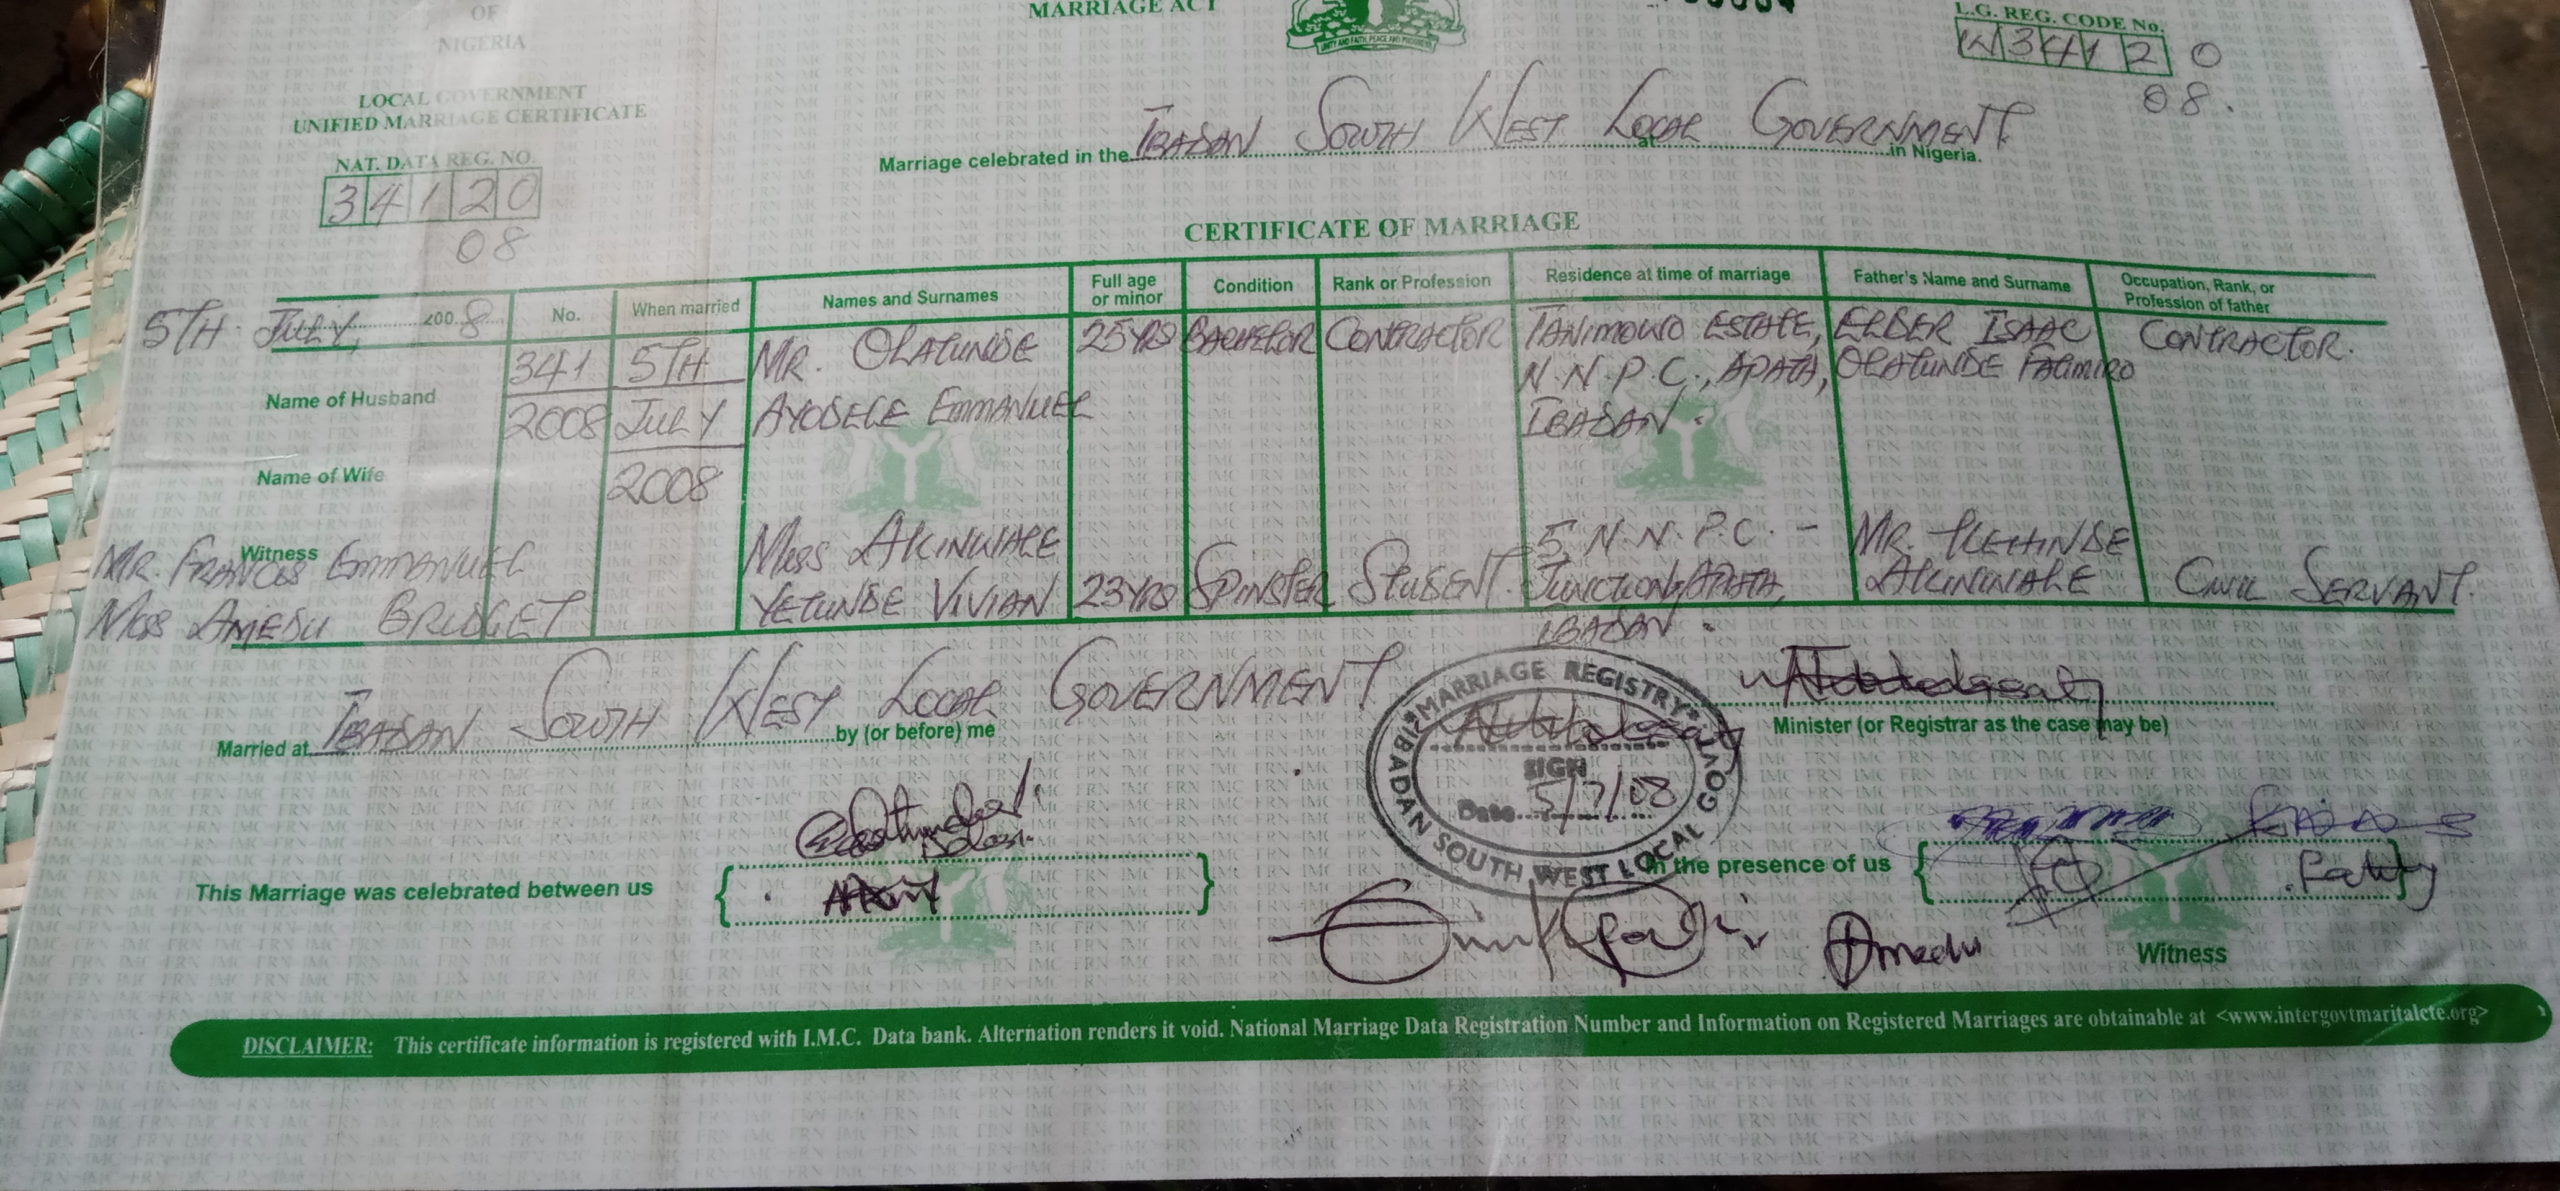 OF
NIGERIA
LOCAL GOVERNMENT
UNIFIED MARRIAGE CERTIFICATE
NAT. DATA REG. NO.
34120
08
MARRIAGE ACT
UNITY AND FAITH, PEACE AND PROGRESS
L.G. REG. CODE No.
3412 0
08.
Marriage celebrated in the IBADAN SOUTH WEST LOCAL GOVERNMENT at in Nigeria.
CERTIFICATE OF MARRIAGE
5TH JULY, 2008
No.
When married
Names and Surnames
Full age or minor
Condition
Rank or Profession
Residence at time of marriage
Father's Name and Surname
Occupation, Rank, or Profession of father
Name of Husband
341
2008
5TH
JULY
2008
MR. OLATUNDE
AYODELE EMMANUEL
25YRS
BACHELOR
CONTRACTOR
TANIMOWO ESTATE,
N.N.P.C., APATA,
IBADAN.
ELDER ISAAC
OLATUNDE
CONTRACTOR.
Name of Wife
MISS AKINWALE
YETUNDE VIVIAN
23YRS
SPINSTER
STUDENT.
5, N.N.P.C. -
JUNCTION, APATA,
IBADAN.
MR. KEHINDE
AKINWALE
CIVIL SERVANT.
Witness
MR. FRANCIS EMMANUEL
MISS AMEDU BRIDGET
Married at IBADAN SOUTH WEST LOCAL GOVERNMENT by (or before) me
Minister (or Registrar as the case may be)
MARRIAGE REGISTRY
IBADAN SOUTH WEST LOCAL GOVT
SIGN
Date 5/7/08
This Marriage was celebrated between us
In the presence of us
Amedu
Witness
DISCLAIMER: This certificate information is registered with I.M.C. Data bank. Alternation renders it void. National Marriage Data Registration Number and Information on Registered Marriages are obtainable at <www.intergovtmaritalcte.org>